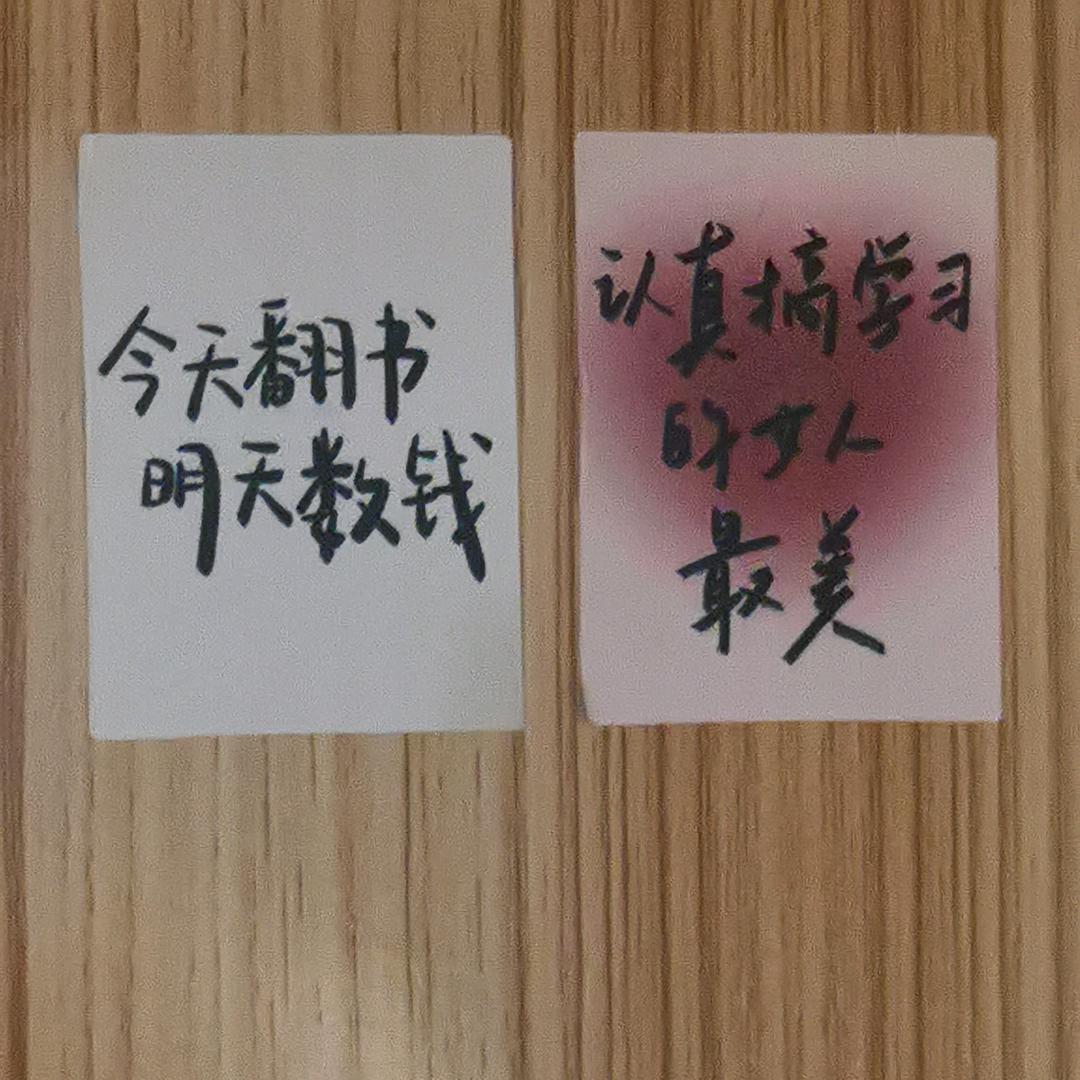 今天翻书
明天数钱
认真搞学习
的女人
最美